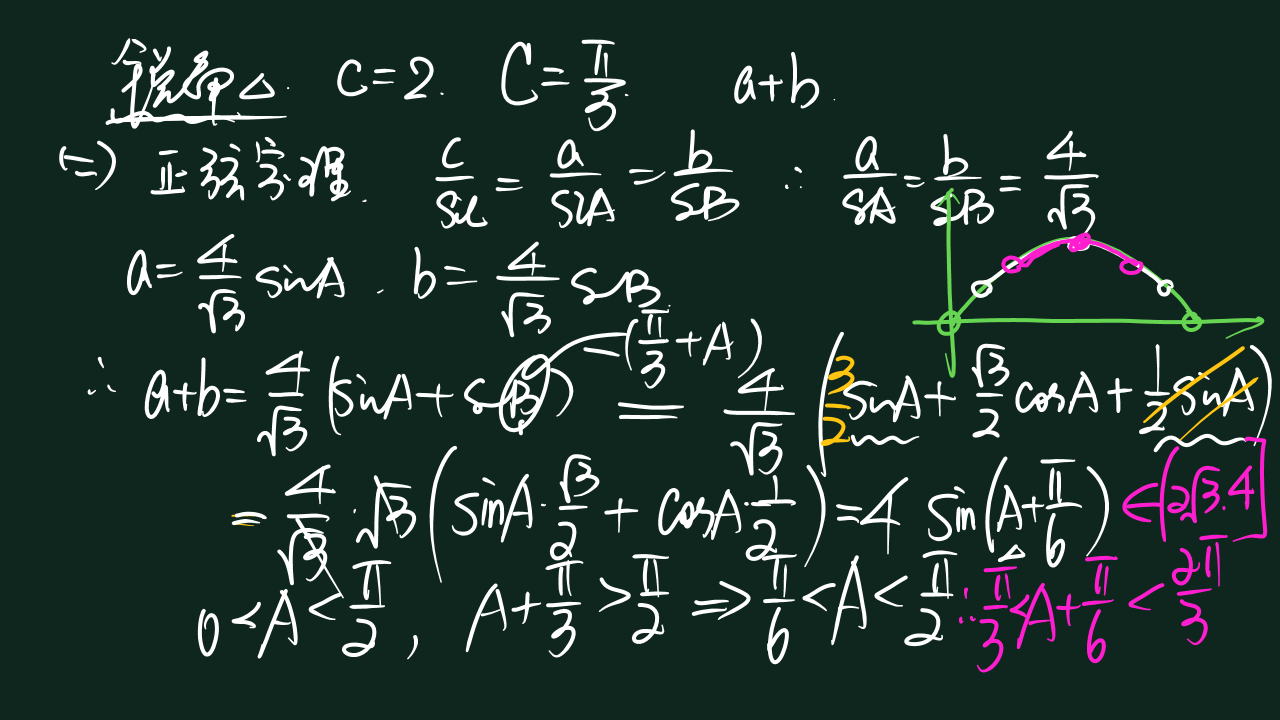 锐角△. c=2. C=π/3. a+b.
(二) 正弦定理. c/sic = a/siA = b/SB ∴ a/SA = b/SB = 4/√3
a = 4/√3 sinA . b = 4/√3 SB.
∴ a+b = 4/√3 (sinA + sB) (π/3 + A) = 4/√3 (3/2 sinA + √3/2 cosA + 1/2 sinA)
= 4/√3 · √3 (sinA · √3/2 + cosA · 1/2) = 4 sin(A + π/6) ∈ (2√3.4]
0 < A < π/2 , A + π/3 > π/2 => π/6 < A < π/2 ∴ π/3 < A + π/6 < 2π/3